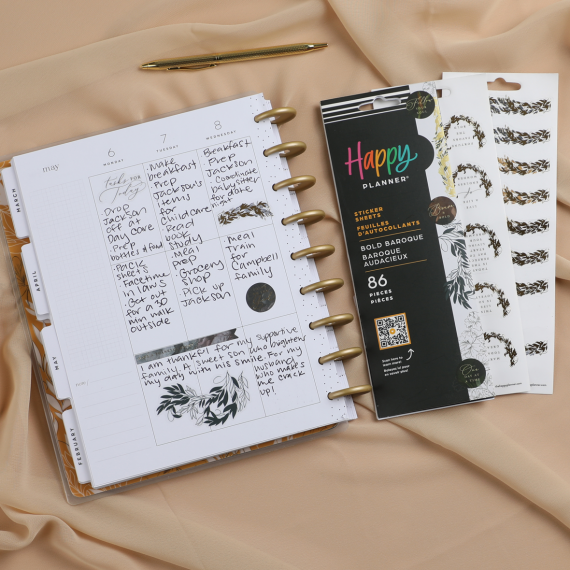 may
6
MONDAY
7
TUESDAY
8
WEDNESDAY
MARCH
APRIL
MAY
FEBRUARY
Drop
Jackson
off at
Day care
Prep
bottles & food
Pack
sheets
Facetime
in laws
Get out
for a 30
min walk
outside
Make
breakfast
Prep
Jackson's
items
for
child care
Read
book
study
Meal
prep
Grocery
shop
Pick up
Jackson
Breakfast
Prep
Jackson
Coordinate
babysitter
for date
night
Meal
Train
for
Campbell
family
I am thankful for my supportive
family. A sweet son who brightens
my day with his smile. For my
husband
who makes
me crack
up!
Happy
PLANNER®
STICKER
SHEETS
FEUILLES
D'AUTOCOLLANTS
BOLD BAROQUE
BAROQUE
AUDACIEUX
86
PIECES
PIÈCES